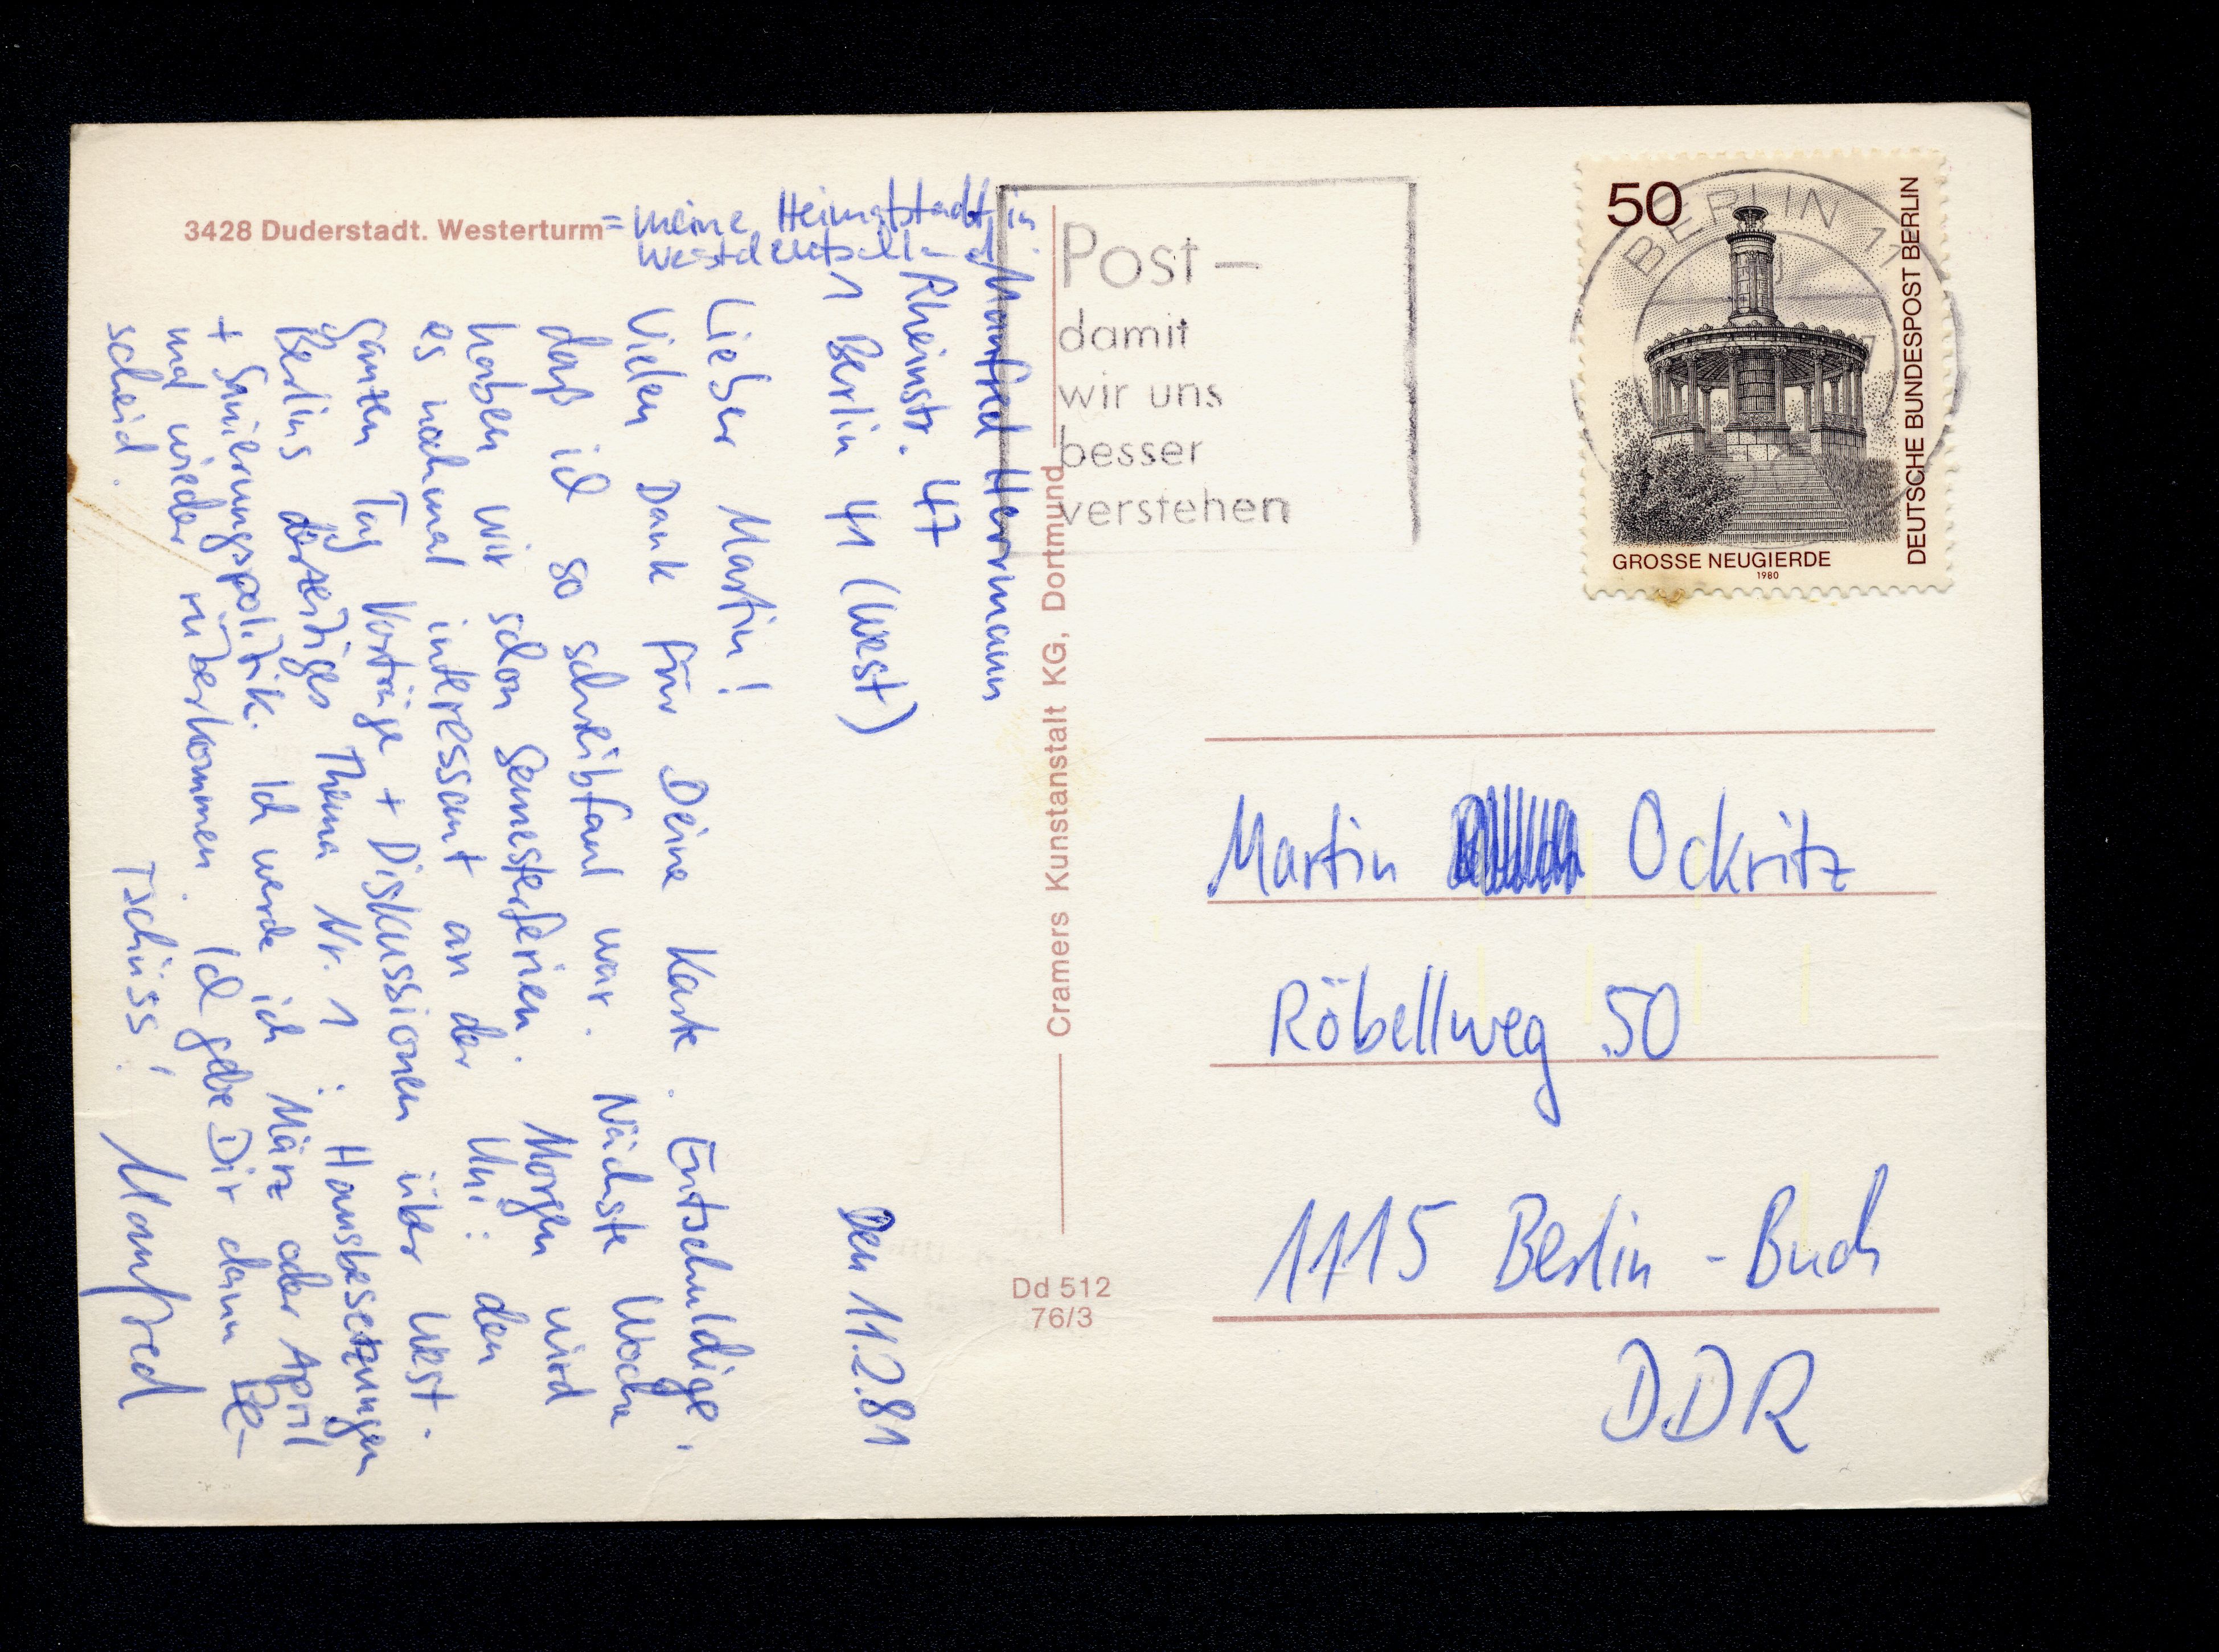 3428 Duderstadt. Westerturm = meine Heimatstadt in
Westdeutschland!
Manfred Herrmann
Rheinstr. 47
1 Berlin 41 (West)
Den 11.2.81
Lieber Martin!
Vielen Dank für Deine Karte. Entschuldige,
daß ich so schreibfaul war. Nächste Woche
haben wir schon Semesterferien. Morgen wird
es nochmal interessant an der Uni: den
ganzen Tag Vorträge + Diskussionen über West-
Berlins derzeitiges Thema Nr. 1: Hausbesetzungen
+ Sanierungspolitik. Ich werde ich März oder April
mal wieder rüberkommen. Ich gebe Dir dann Be-
scheid.
Tschüss! Manfred
Cramers Kunstanstalt KG, Dortmund
Dd 512
76/3
Post –
damit
wir uns
besser
verstehen
BERLIN 11
50
DEUTSCHE BUNDESPOST BERLIN
GROSSE NEUGIERDE
1980
Martin Ockritz
Röbellweg 50
1115 Berlin - Buch
DDR